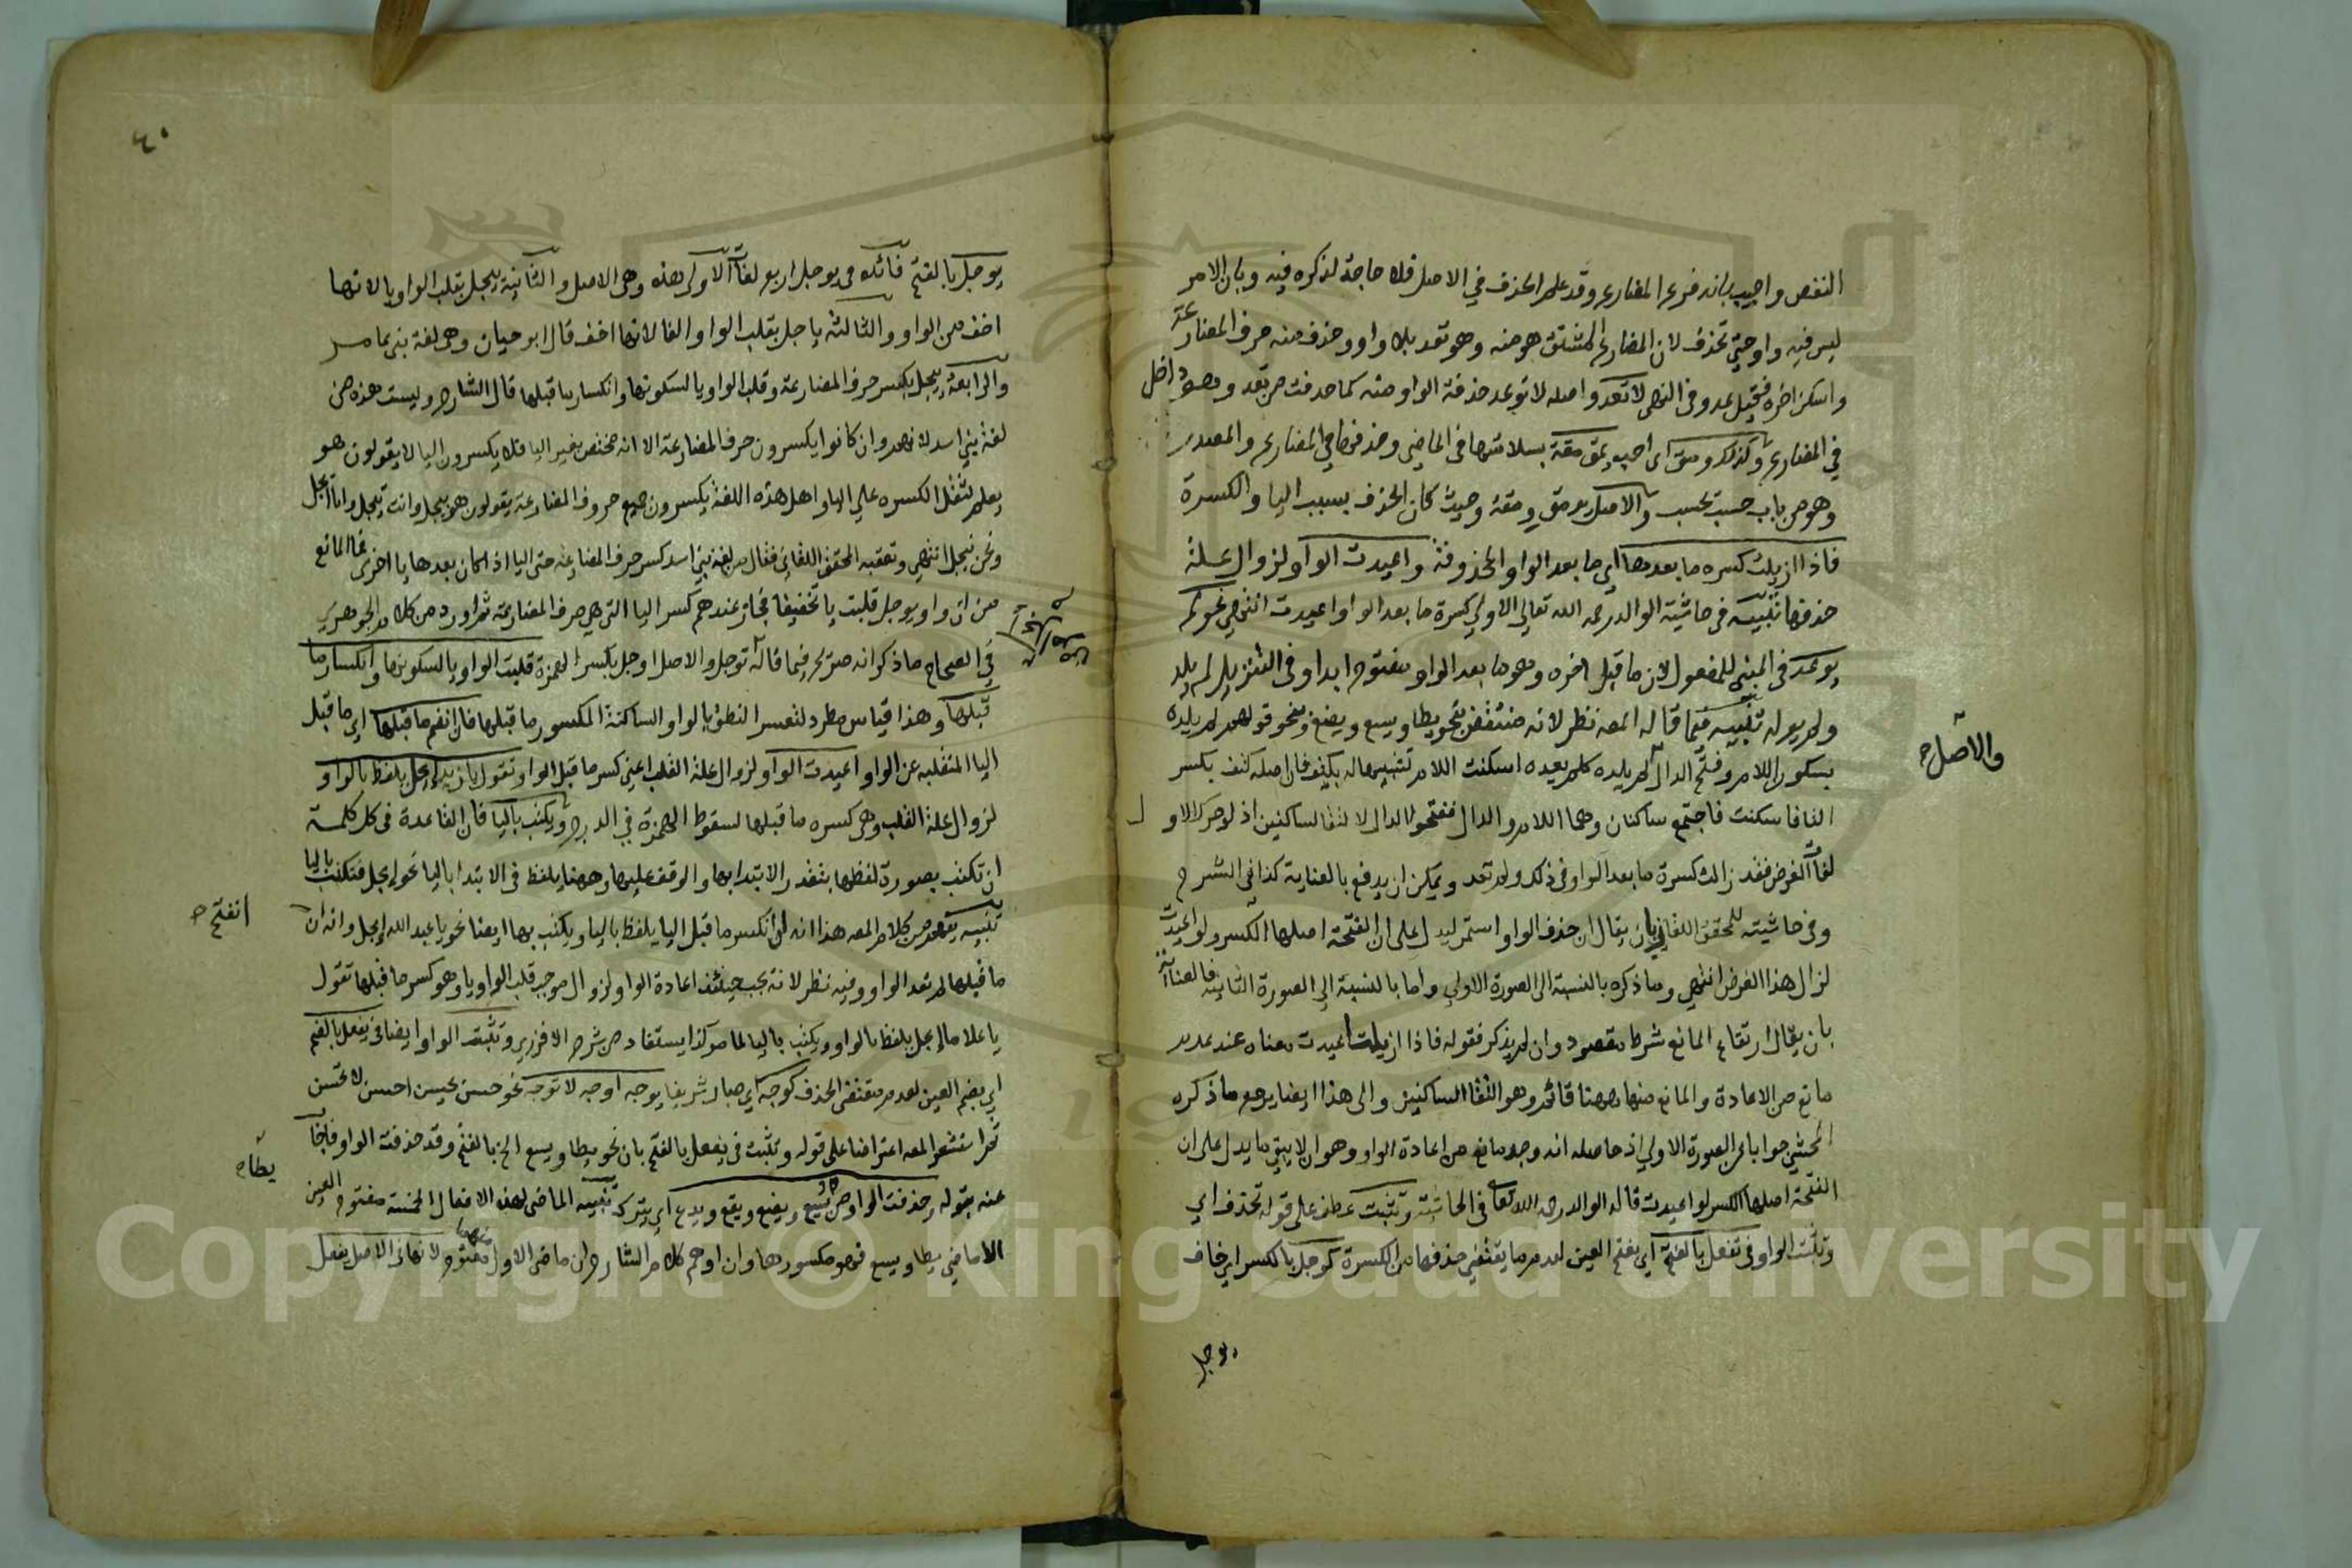 النقص واجيب بانه فرع المضارع وقد علم الحذف في الاصل فلا حاجة لذكره فيه وبان الامر
ليس فيه واو حتي تحذف لان المضارع المشتق هو منه وهو تعد بلا واو وحذف منه حرف المضارعة
واسكن اخره فقيل عد وفى النهى لا تعد واصله لا توعد حذفة الواو منه كما حذفت من تعد وهو داخل
في المضارع وكذلك ومق اى احب يمق مقة بسلامتها فى الماضي وحذفها في المضارع والمصدر
وهو من باب حسب يحسب والاصل يومق ومقة وحيث كان الحذف بسبب اليا والكسرة
فاذا ازيلت كسره ما بعدها اي ما بعد الواو المحذوفة واعيدت الواو لزوال علة
حذفها تنبيه في حاشية الوالد رحمه الله تعالى الاولي كسرة ما بعد الواو اعيدت انتهي نحو لم
يوعد فى المبنى للمفعول لان ما قبل اخره وهو ما بعد الواو مفتوح ابدا وفى التنزيل لم يلد
ولم يولد تنبيه فيما قاله المصه نظر لانه منتقض بنحو يطا ويسع ويضع وبنحو قولهم لم يلده
بسكون اللام وفتح الدال لم يلده كلم يعده اسكنت اللام تشبيها له بكتف فان اصله كتف بكسر
التا فاسكنت فاجتمع ساكنان وهما اللام والدال ففتحوا الدال لالتقا الساكنين اذ لو حركوا الاول
لفات الغرض فقد زالت كسرة ما بعد الواو في ذلك ولم تعد ويمكن ان يدفع بالعناية كذا في الشرح
وفى حاشيته للمحقق اللقاني بان يقال ان حذف الواو استمر ليدل على ان الفتحة اصلها الكسر ولو اعيدت
لزال هذا الغرض انتهي وما ذكره بالنسبة الى الصورة الاولي واما بالنسبة الي الصورة الثانية فالعناية
بان يقال ارتفاع المانع شرط مقصود وان لم يذكر فقوله فاذا ازيلت اعيدت معناه عند عدم
مانع من الاعادة والمانع منها ههنا قائم وهو التقا الساكنين والى هذا ايضا يرجع ما ذكره
المحشي جوابا عن الصورة الاولي اذ حاصله انه وجد مانع من اعادة الواو وهو ان لا يبقي ما يدل على ان
الفتحة اصلها الكسر لو اعيدت قاله الوالد رحمه الله تعالى فى الحاشية وتثبت عطف على قوله تحذف اي
وتثبت الواو فى تفعل بالفتح اي بفتح العين لعدم ما يقتضي حذفها من الكسرة كوجل بالكسر اي خاف
يوجل
والاصل ح
٤٠
يوجل بالفتح فائده فى يوجل اربع لغات الاولى هذه وهى الاصل والثانية ييجل بقلب الواو يا لانها
اخف من الواو والثالثة ياجل بقلب الواو الفا لانها اخف قال ابو حيان وهو لغة بنى عامر
والرابعة ييجل بكسر حرف المضارعة وقلب الواو يا لسكونها وانكسار ما قبلها قال الشارح وليست هذه من
لغة بني اسد لانهم وان كانوا يكسرون حرف المضارعة الا انه مختص بغير اليا فلا يكسرون اليا لا يقولون هو
يعلم لثقل الكسره علي اليا واهل هذه اللغة يكسرون جميع حروف المضارعة يقولون هو ييجل وانت تيجل وانا ايجل
ونحن نيجل انتهي وتعقبه المحقق اللقاني فقال من لغة بني اسد كسر حرف المضارعة حتى اليا اذا كان بعدها يا اخرى فما المانع
من ان واو يوجل قلبت يا تخفيفا فجاز عندهم كسر اليا التي هي حرف المضارعة ثم اورد من كلام الجوهري
في الصحاح ما ذكر انه صريح فيما قاله توجل والاصل اوجل بكسر الهمزة قلبت الواو يا لسكونها وانكسار ما
قبلها وهذا قياس مطرد لتعسر النطق بالواو الساكنة المكسور ما قبلها فان انضم ما قبلها اي ما قبل
اليا المنقلبه عن الواو اعيدت الواو لزوال علة القلب اعني كسر ما قبل الواو وتقول يا زيد ايجل بلفظ بالواو
لزوال علة القلب وهى كسره ما قبلها لسقوط الهمزة في الدرج ويكتب باليا فان القاعدة فى كل كلمة
ان تكتب بصورة لفظها بتقدير الابتدا بها والوقف عليها وههنا يلفظ فى الابتدا باليا نحو ايجل فتكتب باليا
تنبيه يفهم من كلام المصه هذا انه ان انكسر ما قبل اليا يلفظ باليا ويكتب بها ايضا نحو يا عبد الله ايجل وانه ان
ما قبلها لم تعد الواو وفيه نظر لانه يجب حينئذ اعادة الواو لزوال موجب قلب الواو يا وهو كسر ما قبلها تقول
يا غلاما ايجل بلفظ بالواو ويكتب باليا لما مر كذا يستفاد من شرح الافزري وتثبت الواو ايضا فى يفعل بالضم
اي بضم العين لعدم مقتضى الحذف كوجه اي صار شريفا يوجه اوجه لا توجه نحو حسن يحسن احسن لا تحسن
ثم استشعر المصه اعتراضا على قوله وتثبت فى يفعل بالفتح بان نحو يطا ويسع الخ بالفتح وقد حذفت الواو فاجاب
عنه بقوله وحذفت الواو من يسع ويضع ويقع ويدع اي يترك تنبيه الماضى لهذه الافعال الخمسة مفتوح العين
الا ماضي يطا ويسع فهو مكسورها وان اوهم كلام الشارح ان ماضى الاول منهما مفتوح لانها فى الاصل يفعل
انفتح ح
يطا ح